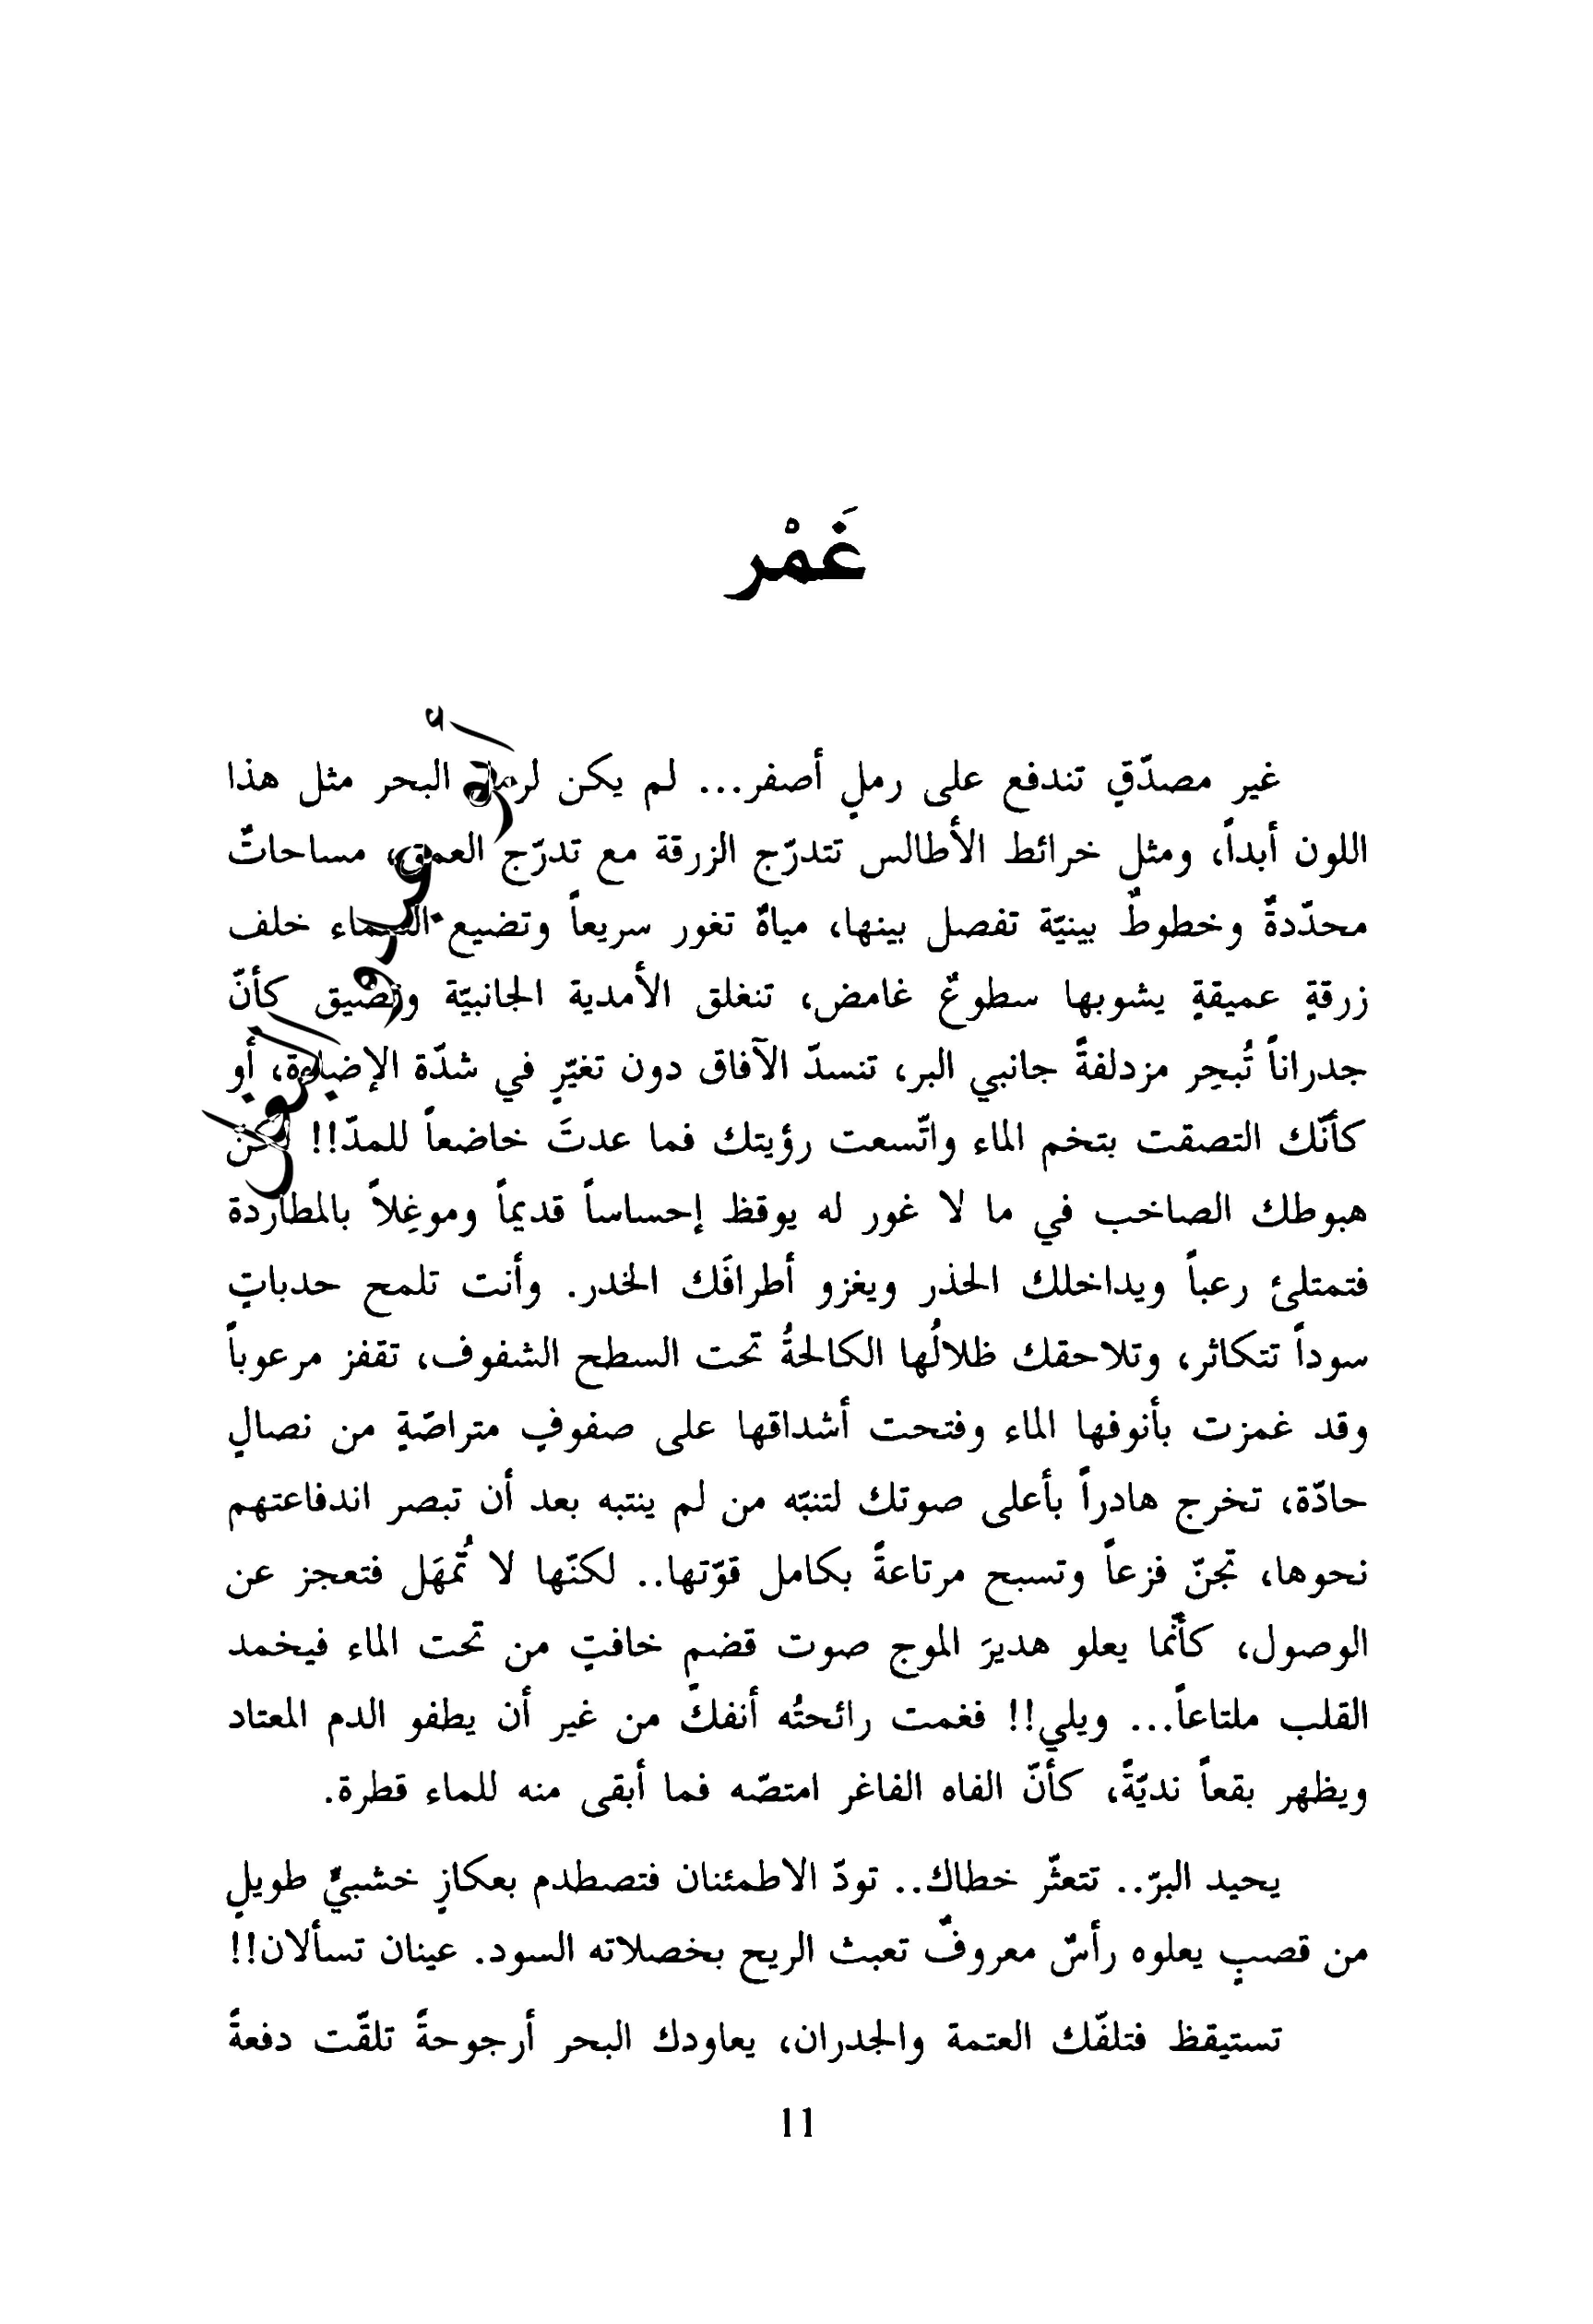 غَمْر
غير مصدّقٍ تندفع على رملٍ أصفر... لم يكن لرمل البحر مثل هذا
اللون أبداً، ومثل خرائط الأطالس تتدرّج الزرقة مع تدرّج العمق، مساحاتٌ
محدّدةٌ وخطوطٌ بينيّة تفصل بينها، مياهٌ تغور سريعاً وتضيع السماء خلف
زرقةٍ عميقةٍ يشوبها سطوعٌ غامض، تنغلق الأمدية الجانبيّة وتضيق كأنّ
جدراناً تُبحِر مزدلفةً جانبي البر، تنسدّ الآفاق دون تغيّرٍ في شدّة الإضاءة، أو
كأنّك التصقت بتخم الماء واتّسعت رؤيتك فما عدتَ خاضعاً للمدّ!! لكن
هبوطك الصاخب في ما لا غور له يوقظ إحساساً قديماً وموغِلاً بالمطاردة
فتمتلئ رعباً ويداخلك الحذر ويغزو أطرافَك الخدر. وأنت تلمح حدباتٍ
سوداً تتكاثر، وتلاحقك ظلالُها الكالحةُ تحت السطح الشفوف، تقفز مرعوباً
وقد غمزت بأنوفها الماء وفتحت أشداقها على صفوفٍ متراصّةٍ من نصالٍ
حادّة، تخرج هادراً بأعلى صوتك لتنبّه من لم ينتبه بعد أن تبصر اندفاعتهم
نحوها، تجنّ فزعاً وتسبح مرتاعةً بكامل قوّتها.. لكنّها لا تُمهَل فتعجز عن
الوصول، كأنّما يعلو هديرَ الموج صوت قضمٍ خافتٍ من تحت الماء فيخمد
القلب ملتاعاً... ويلي!! فغمت رائحتُه أنفكَ من غير أن يطفو الدم المعتاد
ويظهر بقعاً نديّةً، كأنّ الفاه الفاغر امتصّه فما أبقى منه للماء قطرة.
يحيد البرّ.. تتعثّر خطاك.. تودّ الاطمئنان فتصطدم بعكازٍ خشبيٍّ طويلٍ
من قصبٍ يعلوه رأسٌ معروفٌ تعبث الريح بخصلاته السود. عينان تسألان!!
تستيقظ فتلفّك العتمة والجدران، يعاودك البحر أرجوحةً تلقّت دفعةً
11